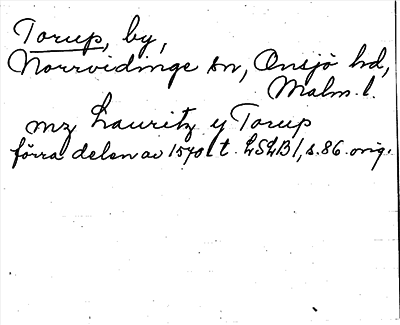 Torup, by,
Norrvidinge sn, Onsjö hd,
Malm. l.
mz Lauritz y Torup
förra delen av 1570 t. LSLB 1, s. 86. orig.